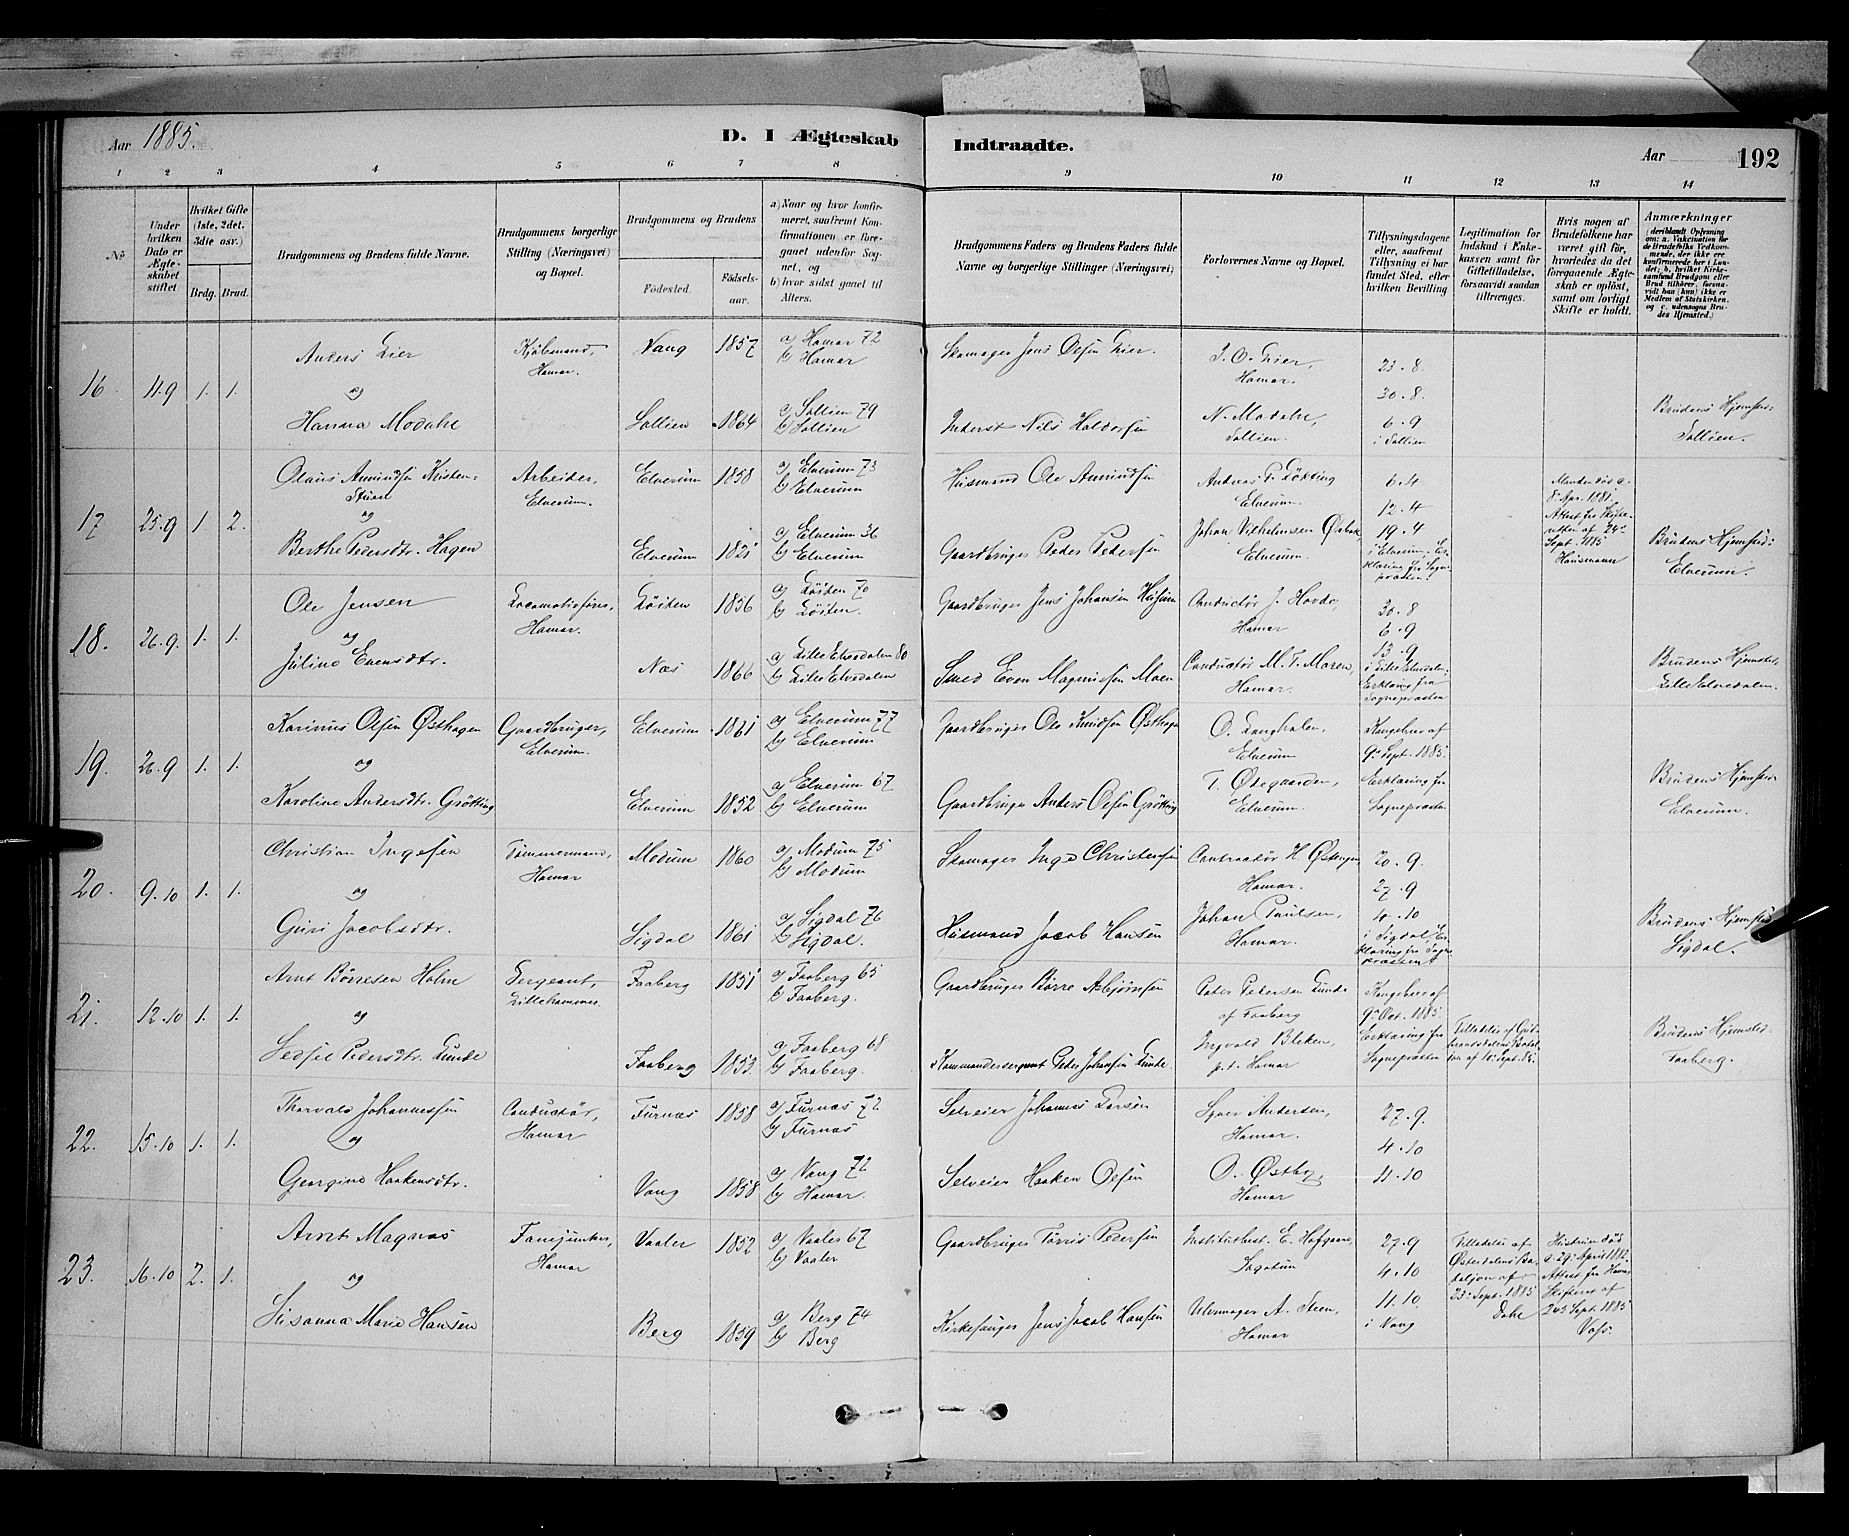 Aar 1885.
D. I Ægteskab
Indtraadte.
Aar 192
1 2 3 4 5 6 7 8 9 10 11 12 13 14
No
Under hvilken Dato er Ægteskabet stiftet.
Hvilket Gifte (1ste, 2det, 3die osv.)
Brdg. Brud.
Brudgommens og Brudens fulde Navne.
Brudgommens borgerlige Stilling (Næringsvei) og Bopæl.
Brudgommens og Brudens
Födested.
Födsels-aar.
a) Naar og hvor konfirmeret, saafremt Konfirmationen er foregaaet udenfor Sognet, og
b) hvor sidst gaaet til Alters.
Brudgommens Faders og Brudens Faders fulde Navne og borgerlige Stillinger (Næringsvei)
Forlovernes Navne og Bopæl.
Tillysningsdagene eller, saafremt Tillysning ei har fundet Sted, efter hvilken Bevilling
Legitimation for Indskud i Enkekassen samt for Giftetilladelse, forsaavidt saadan tiltrænges.
Hvis nogen af Brudefolkene har været gift för, hvorledes da det foregaaende Ægteskab er oplöst, samt om lovligt Skifte er holdt.
Anmærkninger (deriblandt Oplysning om: a. Vakcination for de Brudefolks Vedkommende, der ikke ere konfirmerede her i Landet; b. hvilket Kirkesamfund Brudgom eller Brud tilhörer, forsaavidt han (hun) ikke er Medlem af Statskirken, og c. udensogns Brudes Hjemsted.)
16 4.9 1. 1.
Anders Lier
og
Hanna Modahl
Kjøbmand, Hamar.
Vang 1857
a) Hamar 72
b) Hamar
Sollien 1864
a) Sollien 79
b) Sollien
Skomager Jens Olsen Lier.
Inderst Nils Haldorsen
J. O. Lier, Hamar.
N. Modahl, Sollien.
23.8.
30.8.
6.9
i Sollien
Brudens Hjemsted:
Sollien.
17 25.9 1. 2.
Olaus Amundsen Kristenstuen
og
Berthe Pedersdtr. Hagen
Arbeider, Elverum.
Elverum 1858
a) Elverum 73
b) Elverum
Elverum 1821
a) Elverum 36
b) Elverum
Husmand Ole Amundsen
Gaardbruger Peder Pedersen
Elverum
Johan Vilhelmsen
Elverum.
6.4
12.4
19.4
i Elverum. Erklæring fra Sognepræsten.
Manden død
8. Apr. 1881.
Attest fra Skifteretten af 24de Sept. 1885
Brudens Hjemsted:
Elverum.
18. 26.9. 1. 1.
Ole Jensen
og
Juline Evensdtr.
Locomotivfører, Hamar.
Løiten 1856
a) Løiten 70
b) Løiten.
Næs 1866
a) Lille Elvedalen 80
b) Lille Elvedalen
Gaardbruger Jens Johansen Husum
Smed Even Magnussen Moen
Conductør J. Hovde, Hamar
Conductør M. T. Moren, Hamar.
30.8
6.9
13.9
i Lille Elvedalen.
Erklæring fra Sognepræsten
Brudens Hjemsted:
Lille Elvedalen.
19. 26.9 1. 1.
Karinus Olsen Østhagen
og
Karoline Andersdtr. Grøtting
Gaardbruger, Elverum.
Elverum 1861
a) Elverum 77
b) Elverum
Elverum 1852
a) Elverum 67
b) Elverum
Gaardbruger Ole Knudsen Østhagen
Gaardbruger Anders Olsen Grøtting
Elverum
T. Øtegaarden, Elverum.
Kongebrev af 9de Sept. 1885.
Erklæring fra Sognepræsten.
Brudens Hjemsted:
Elverum.
20. 9.10 1. 1.
Christian Ingesen
og
Guri Jacobsdtr.
Tømmermand, Hamar
Modum 1860
a) Modum 75
b) Modum
Sigdal 1861
a) Sigdal 76
b) Sigdal.
Skomager Inge Christensen
Husmand Jacob Hansen
Hamar.
Johan Paulsen, Hamar.
20.9.
27.9
4.10
i Sigdal, Erklæring fra Sognepræsten
Brudens Hjemsted:
Sigdal.
21. 12.10 1. 1.
Arnt Børresen Holm
og
Sedsel Pedersdtr. Lunde
Sergeant, Lillehammer.
Faaberg 1851
a) Faaberg 65
b) Faaberg.
Faaberg 1853.
a) Faaberg 68
b) Faaberg.
Gaardbruger Børre Asbjørnsen
Kommandersergeant Peder Johansen Lunde.
Peder Pedersen Lunde af Faaberg
Ingvald Bleken, p.t. Hamar
Kongebrev af 9de Oct. 1885.
Erklæring fra Sognepræsten
Tilladelse af Gudbrandsdalens Bataljon af
Brudens Hjemsted:
Faaberg.
22. 15.10 1. 1.
Thorvald Johannessen
og
Georgine Haakensdtr.
Conductør, Hamar
Furnæs 1858
a) Furnæs 72
b) Furnæs
Vang 1858
a) Vang 72
b) Hamar.
Selveier Johannes Larsen
Selveier Haaken Olsen
Syver Andersen, Hamar.
O. Østby, Hamar
27.9.
4.10
11.10
23. 16.10 2. 1.
Arnt Magnus
og
Susanna Marie Hansen
Fanejunker, Hamar
Vaaler 1852
a) Vaaler 67
b) Vaaler
Berg 1859
a) Berg 74
b) Berg
Gaardbruger Torris Pedersen
Kirkesanger Jens Jacob Hansen
Institutbest. E. Hofgaard, Sagatun
Uhrmager A. Steen, Hamar
27.9
4.10
11.10.
i Vang
Tilladelse af Østerdalens Bataljon af 23. Sept. 1885
Dahl
Hustruen død
29. April 1882.
Attest fra Hamar Skifteret af 24de Sept. 1885